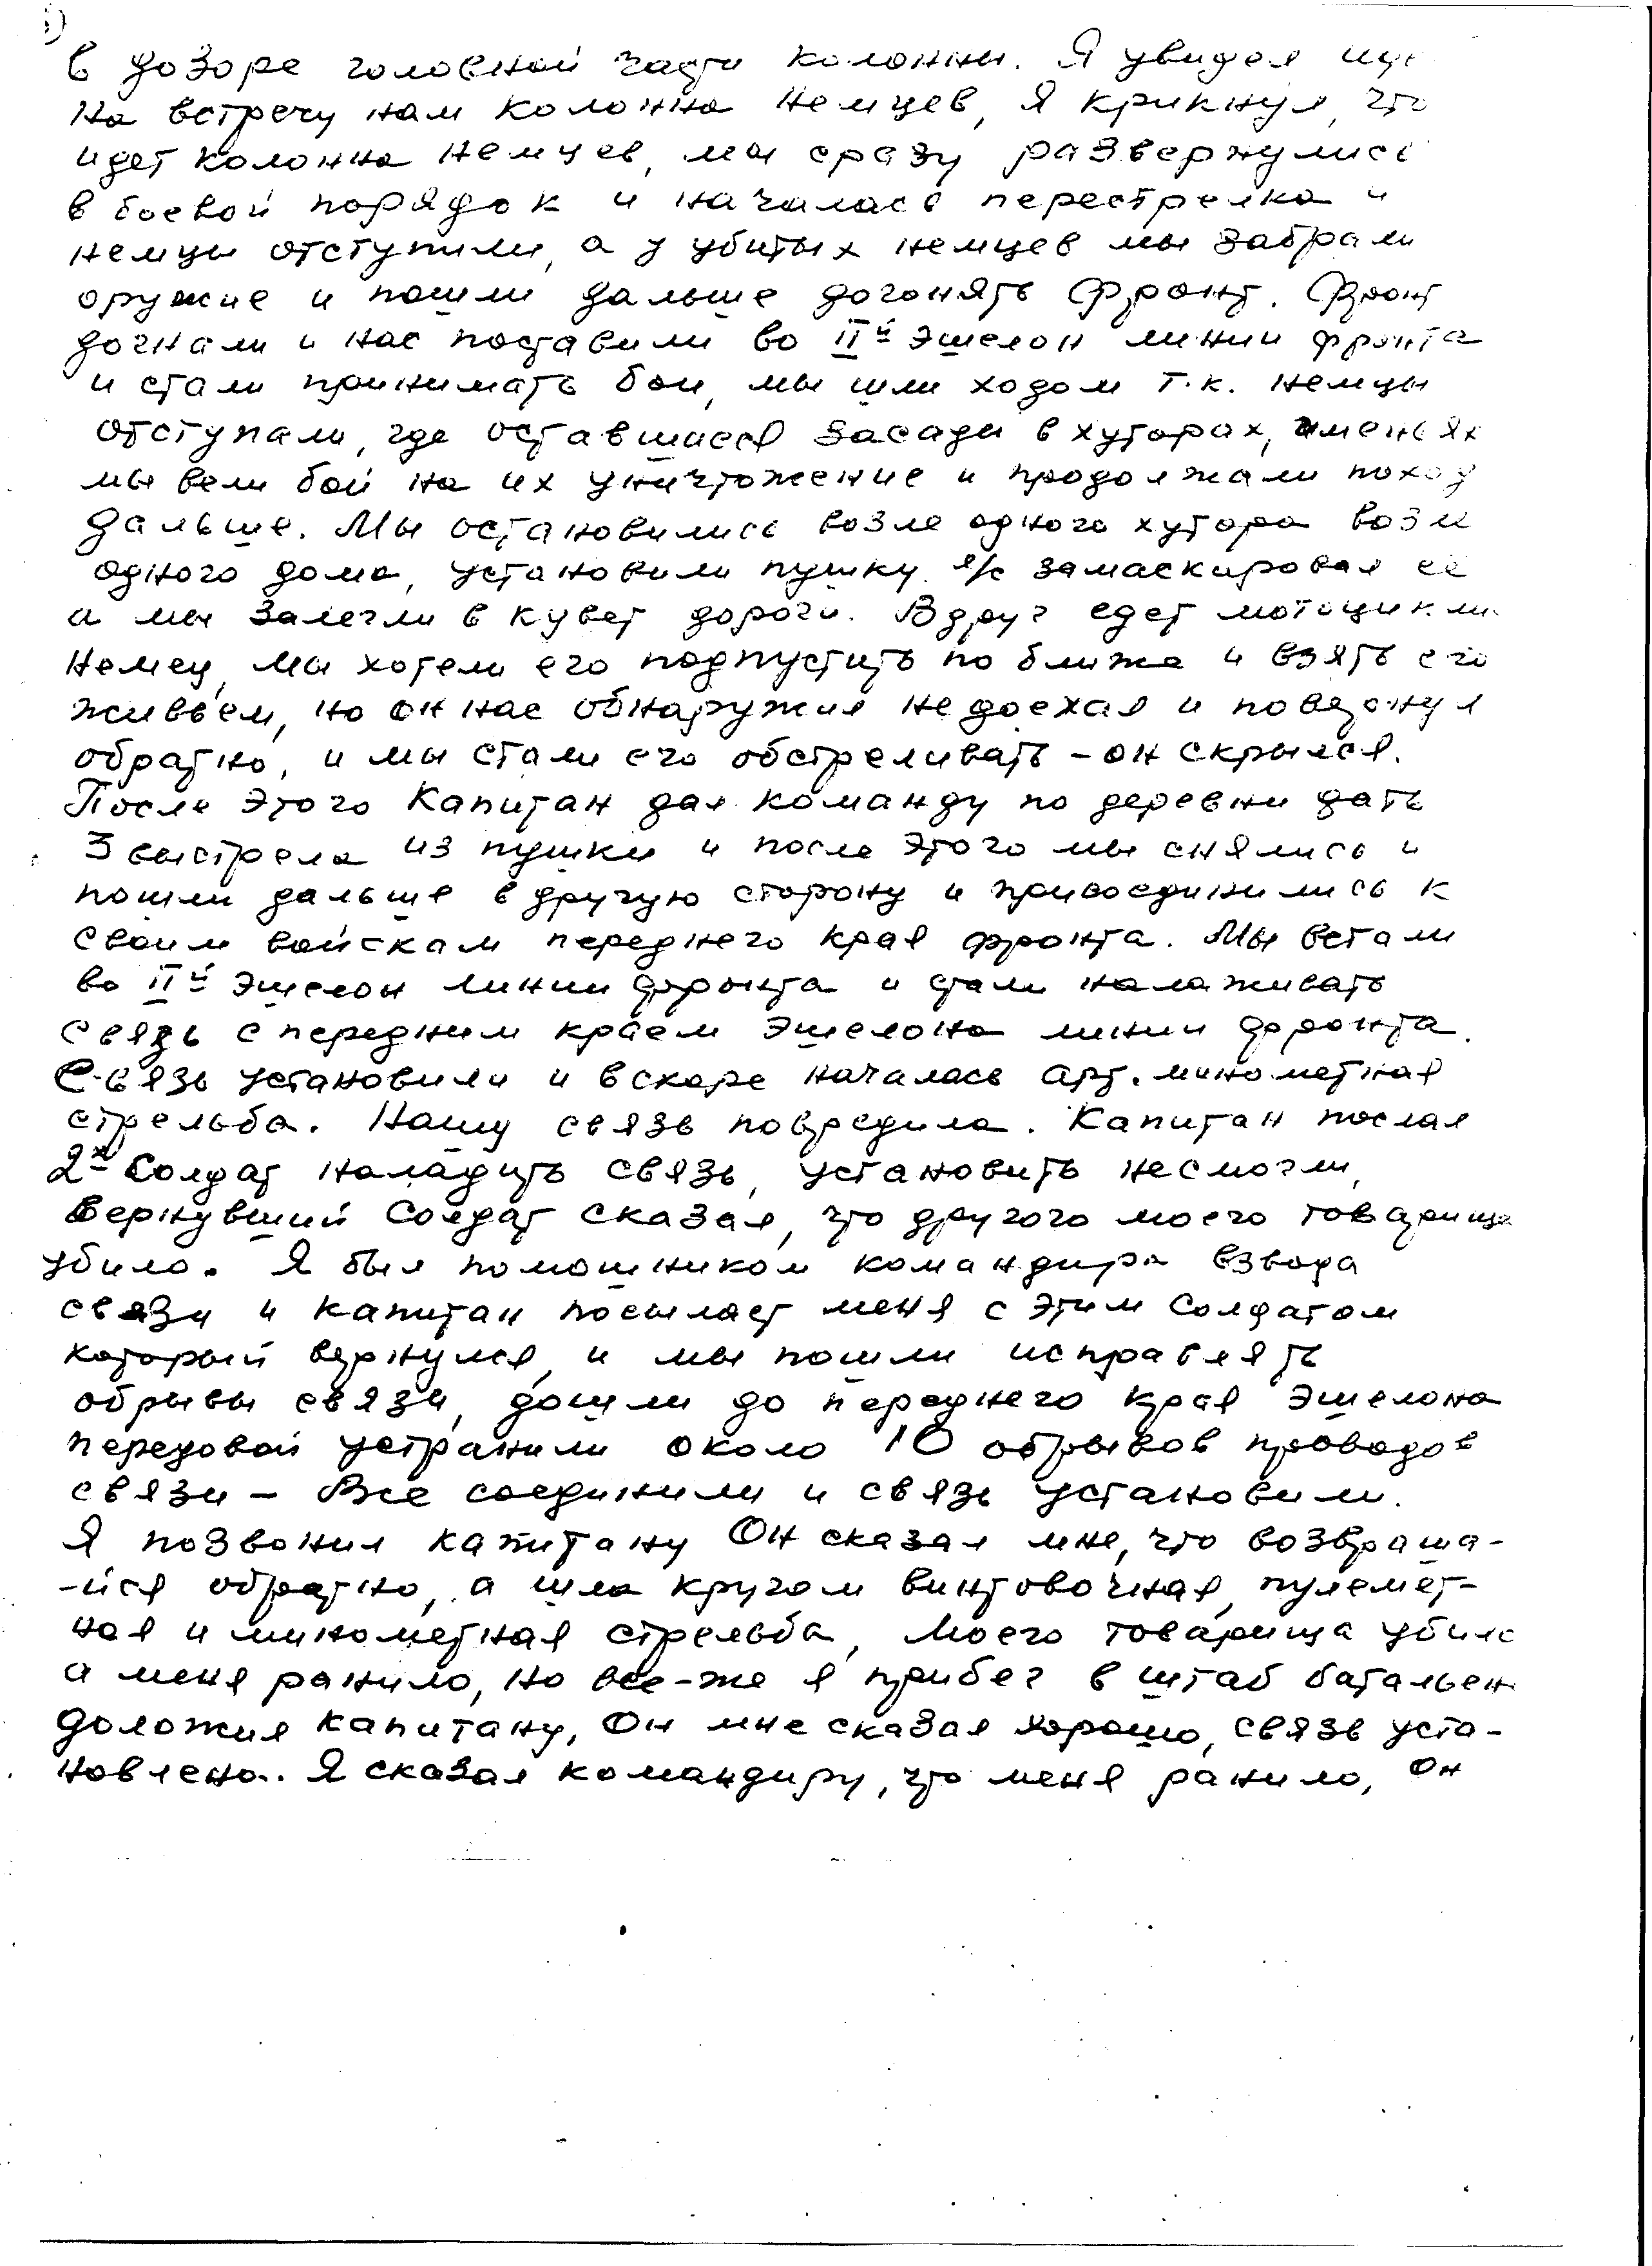 в дозоре головной части колонны. Я увидел
На встречу нам колонна немцев, Я крикнул, что
идет колонна немцев, мы сразу развернулись
в боевой порядок и началась перестрелка и
немцы отступили, а у убитых немцев мы забрали
оружие и пошли дальше догонять фронт. Фронт
догнали и нас поставили во IIй эшелон линии фронта
и стали принимать бои, мы шли ходом т.к. немцы
отступали, где оставшиеся засады в хуторах, именьях
мы вели бой на их уничтожение и продолжали поход
дальше. Мы остановились возле одного хутора возле
одного дома, установили пушку замаскировал её
а мы залегли в кувет дороги. Вдруг едет мотоцикли
Немец, мы хотели его подпустить по ближе и взять его
живьём, но он нас обнаружил не доехал и повернул
обратно, и мы стали его обстреливать – он скрылся.
После этого Капитан дал команду по деревни дать
3 выстрела из пушки и после этого мы снялись и
пошли дальше в другую сторону и присоединились к
своим войскам переднего края фронта. Мы встали
во IIй эшелон линии фронта и стали налаживать
связь с передним краем эшелона линии фронта.
Связь установили и вскоре началась арт. минометная
стрельба. Нашу связь повредила. Капитан послал
2х Солдат наладить связь, установить несмогли,
вернувший Солдат сказал, что другого моего товарища
убило. Я был помошником командира взвода
связи и капитан посылает меня с этим Солдатом
который вернулся, и мы пошли исправлять
обрывы связи, дошли до переднего края эшелона
передовой устранили около 10 обрывов проводов
связи – Все соединили и связь установили.
Я позвонил капитану Он сказал мне, что возвраща-
-йся обратно, а шла кругом винтовочная, пулемет-
ная и минометная стрельба, Моего товарища убило
а меня ранило, но все-же я прибег в штаб батальен
доложил капитану, Он мне сказал хорошо, связь уста-
новлена.. Я сказал командиру, что меня ранило, Он